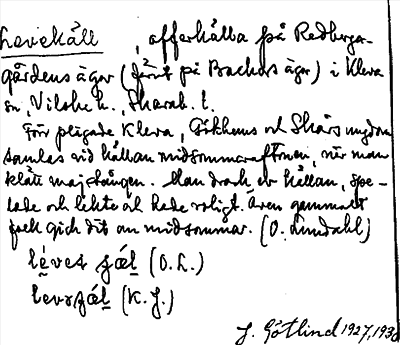 Levekäll, offerkälla på Redberga-
gårdens ägor (förut på Backors ägor) i Kleva
sn, Vilske h., Skarab. l.
För plägade Kleva, Gökhems och Skärs ungdom
samlas vid källan midsommaraftonen, när man
klätt majstången. Man drack ur källan, spe-
lade och lekte och hade roligt. Även gammalt
folk gick dit om midsommar. (O. Lundahl)
léves ʒæl (O. L.)
levsʒæl (K. J.)
J. Götlind 1927, 1930